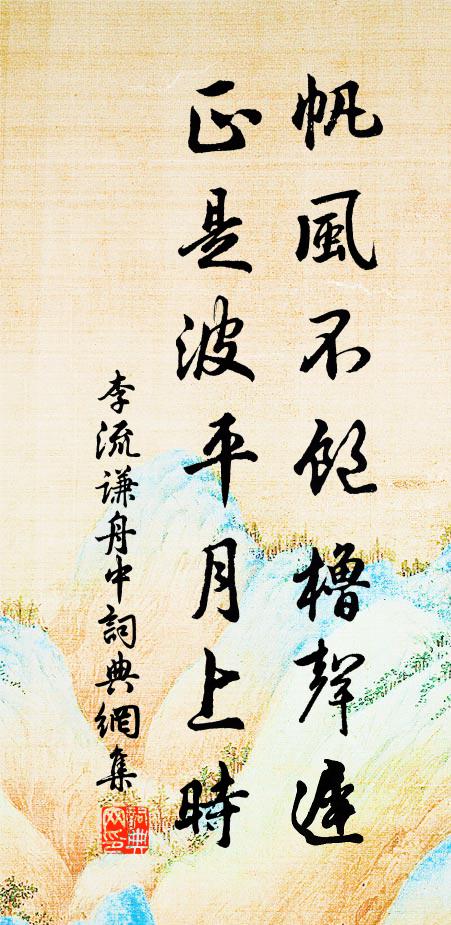 帆風不飽櫓聲遲
正是波平月上時
李流谦舟中詞典網集
詞典
网印